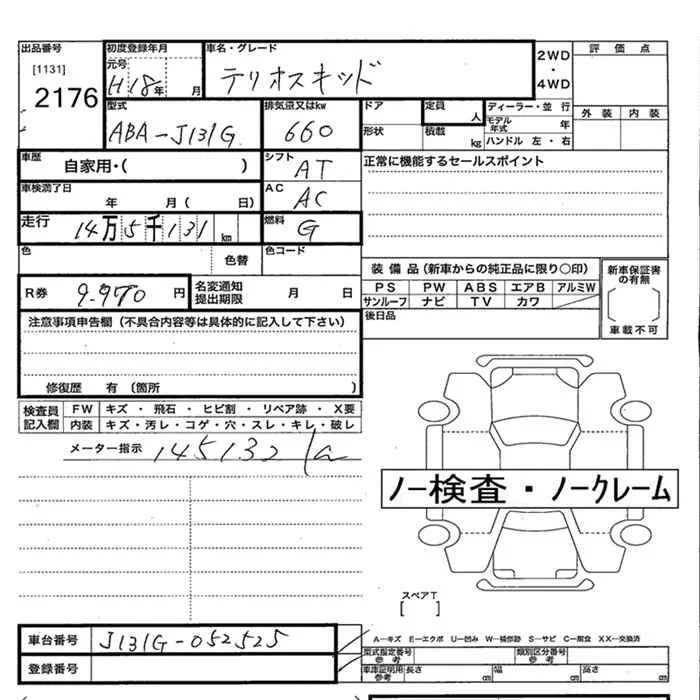 出品番号 初度登録年月 車名・グレード 2WD・4WD 評価点
[1131] 元号
2176 H18年 月 テリオスキッド 外装 内装
型式 排気量又はkw ドア 定員 人 ディーラー・並行
ABA-J131G 660 形状 積載 kg モデル年式 年
ハンドル 左・右
車歴 自家用・( ) シフト AT 正常に機能するセールスポイント
車検満了日 年 月( 日) AC AC
走行 14万5千131km 燃料 G
色 色替 色コード
装備品(新車からの純正品に限り○印) 新車保証書の有無
R券 9.970円 名変通知提出期限 月 日 PS PW ABS エアB アルミW
サンルーフ ナビ TV カワ
注意事項申告欄(不具合内容等は具体的に記入して下さい) 後日品 車載不可
修復歴 有 (箇所 )
検査員記入欄 FW キズ・飛石・ヒビ割・リペア跡・X要
内装 キズ・汚レ・コゲ・穴・スレ・キレ・破レ
メーター指示 145132
ノー検査・ノークレーム
スペアT
[ ]
車台番号 J131G-052525 A-キズ E-エクボ U-凹み W-補修跡 S-サビ C-腐食 XX-交換済
型式指定番号 参考 類別区分番号 参考
登録番号 車庫証明用参考 長さ cm 幅 cm 高さ cm